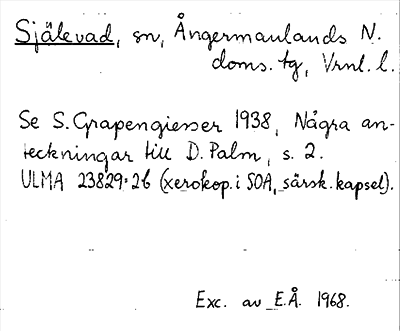 Själevad, sn, Ångermanlands N.
doms. tg, Vrnl. l.
Se S. Grapengiesser 1938, Några an-
teckningar till D. Palm, s. 2.
ULMA 23829:26 (xerokop. i SOA, särsk. kapsel).
Exc. av E.Å. 1968.